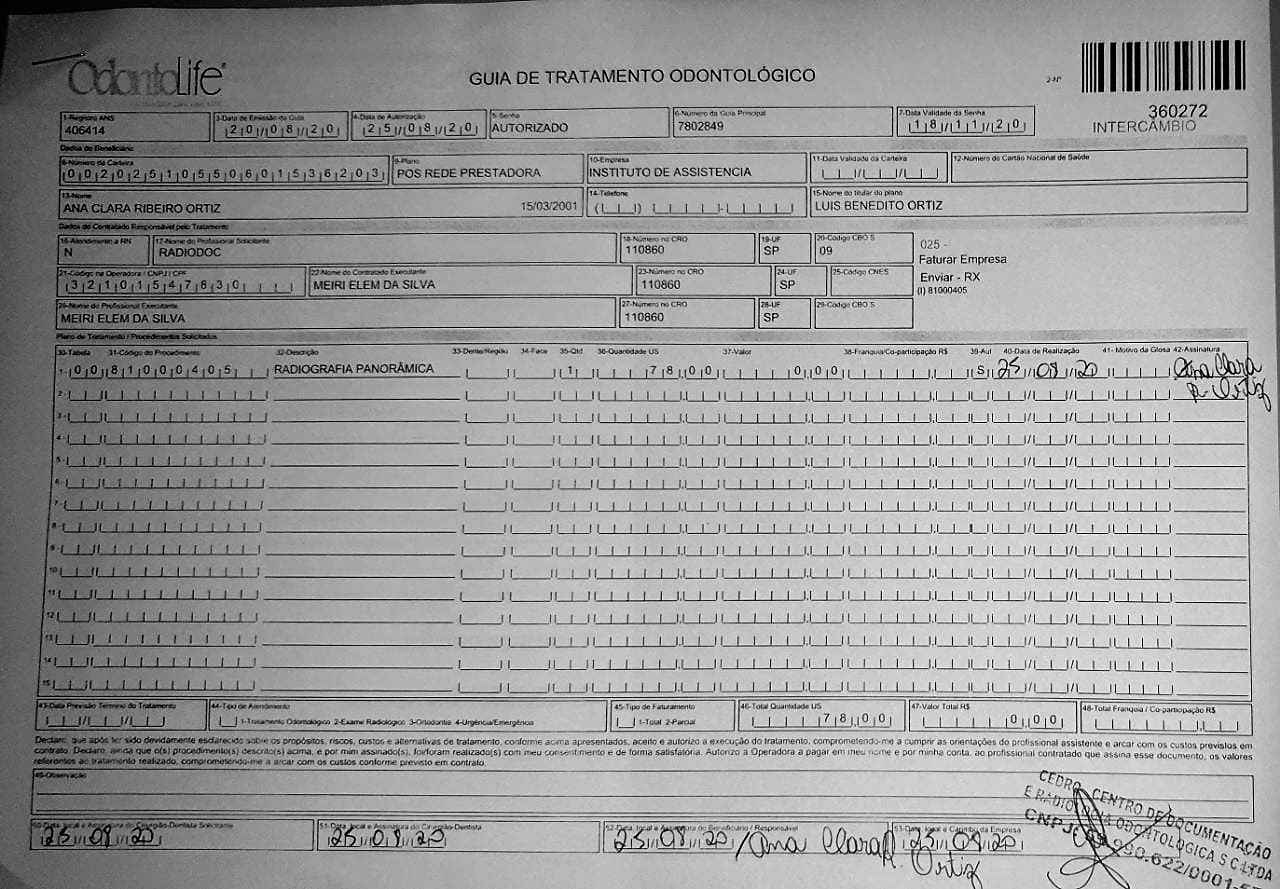 OdontoLife
GUIA DE TRATAMENTO ODONTOLÓGICO
360272
INTERCÂMBIO
1-Registro ANS
406414
3-Data de Emissão da Guia
20/08/20
4-Data de Autorização
25/08/20
5-Senha
AUTORIZADO
6-Número da Guia Principal
7802849
7-Data Validade da Senha
18/11/20
Dados do Beneficiário
8-Número da Carteira
00202510550601536203
9-Plano
POS REDE PRESTADORA
10-Empresa
INSTITUTO DE ASSISTENCIA
11-Data Validade da Carteira
12-Número do Cartão Nacional de Saúde
13-Nome
ANA CLARA RIBEIRO ORTIZ 15/03/2001
14-Telefone
15-Nome do titular do plano
LUIS BENEDITO ORTIZ
Dados do Contratado Responsável pelo Tratamento
16-Atendimento a RN
N
17-Nome do Profissional Solicitante
RADIODOC
18-Número no CRO
110860
19-UF
SP
20-Código CBO S
09
025 -
Faturar Empresa
Enviar - RX
(I) 81000405
21-Código na Operadora / CNPJ / CPF
32101547830
22-Nome do Contratado Executante
MEIRI ELEM DA SILVA
23-Número no CRO
110860
24-UF
SP
25-Código CNES
26-Nome do Profissional Executante
MEIRI ELEM DA SILVA
27-Número no CRO
110860
28-UF
SP
29-Código CBO S
Plano de Tratamento / Procedimentos Solicitados
30-Tabela 31-Código do Procedimento 32-Descrição 33-Dente/Região 34-Face 35-Qtd 36-Quantidade US 37-Valor 38-Franquia/Co-participação R$ 39-Aut 40-Data de Realização 41- Motivo da Glosa 42-Assinatura
1- 00 81000405 RADIOGRAFIA PANORÂMICA 1 78,00 0,00 S 25/08/20 Ana Clara
R. Ortiz
2-
3-
4-
5-
6-
7-
8-
9-
10-
11-
12-
13-
14-
15-
43-Data Previsão Término do Tratamento
44-Tipo de Atendimento
1-Tratamento Odontológico 2-Exame Radiológico 3-Ortodontia 4-Urgência/Emergência
45-Tipo de Faturamento
1-Total 2-Parcial
46-Total Quantidade US
78,00
47-Valor Total R$
0,00
48-Total Franquia / Co-participação R$
Declaro, que após ter sido devidamente esclarecido sobre os propósitos, riscos, custos e alternativas de tratamento, conforme acima apresentados, aceito e autorizo a execução do tratamento, comprometendo-me a cumprir as orientações do profissional assistente e arcar com os custos previstos em
contrato. Declaro, ainda que o(s) procedimento(s) descrito(s) acima, e por mim assinado(s), foi/foram realizado(s) com meu consentimento e de forma satisfatória. Autorizo a Operadora a pagar em meu nome e por minha conta, ao profissional contratado que assina esse documento, os valores
referentes ao tratamento realizado, comprometendo-me a arcar com os custos conforme previsto em contrato.
49-Observação
50-Data, local e Assinatura do Cirurgião-Dentista Solicitante
25/08/20
51-Data, local e Assinatura do Cirurgião-Dentista
25/08/20
52-Data, local e Assinatura do Beneficiário / Responsável
25/08/20/Ana Clara R. Ortiz
53-Data, local e Carimbo da Empresa
25/08/20
CEDRO CENTRO DE DOCUMENTAÇÃO
E RADIOLOGIA ODONTOLÓGICA S C LTDA
CNPJ